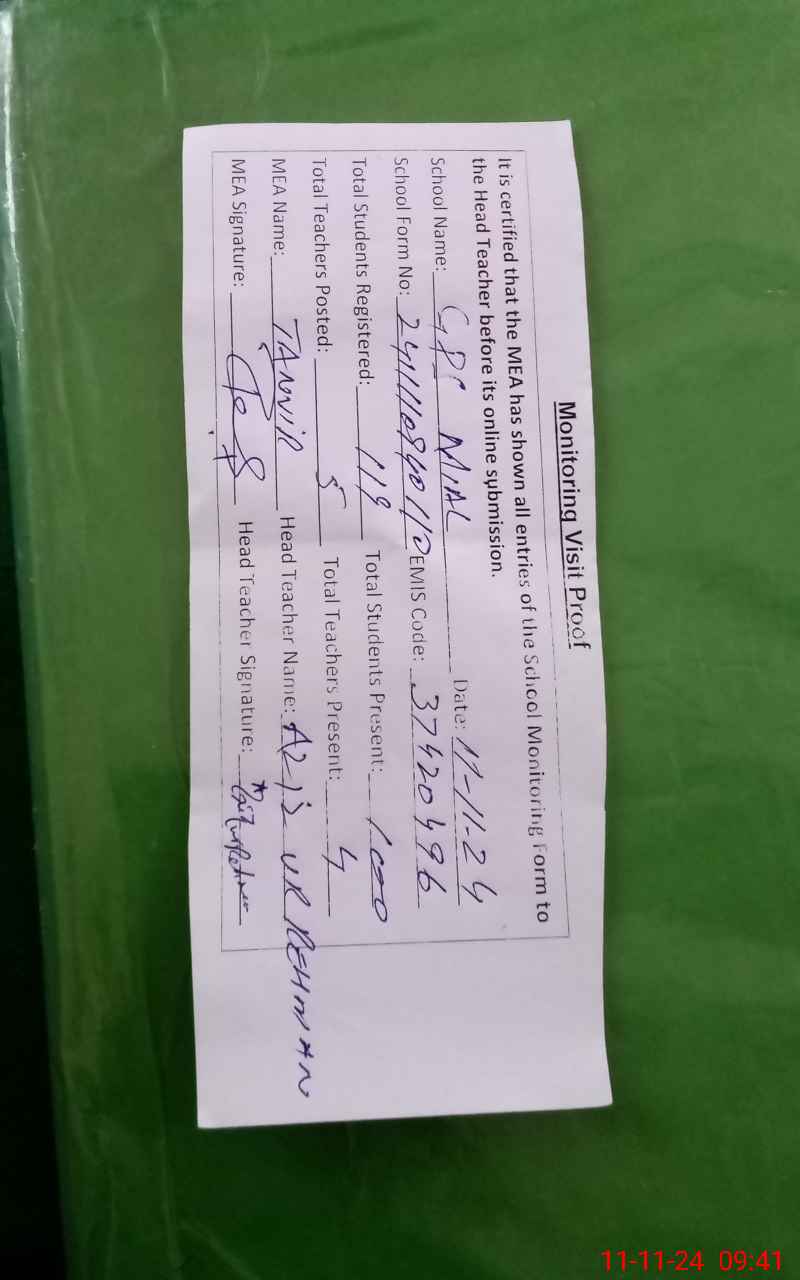 Monitoring Visit Proof
It is certified that the MEA has shown all entries of the School Monitoring Form to
the Head Teacher before its online submission.
School Name: GPS MIAL Date: 11-11-24
School Form No: 2411110840110 EMIS Code: 37420496
Total Students Registered: 119 Total Students Present: 100
Total Teachers Posted: 5 Total Teachers Present: 4
MEA Name: TANVIR Head Teacher Name: AZIZ UR REHMAN
MEA Signature: Head Teacher Signature:
11-11-24 09:41